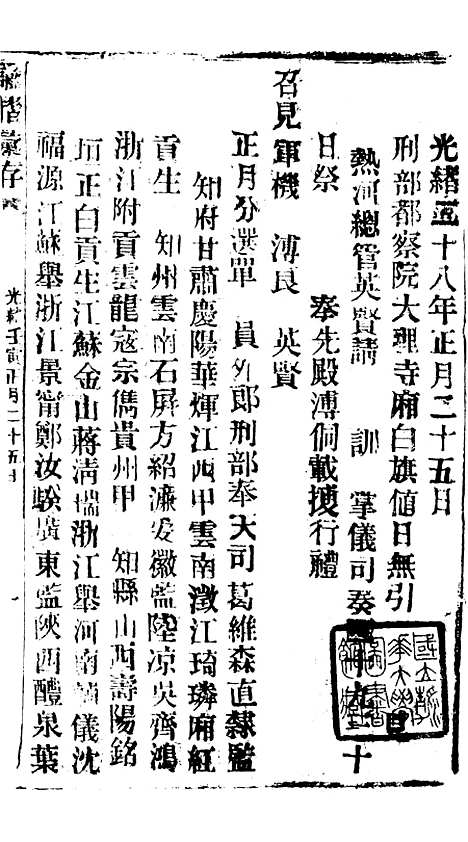 光緒二十八年正月二十五日
刑部都察院大理寺廂白旗値日無引
熱河總管英賢請 訓 掌儀司奏 十九 日十
日祭 奉先殿溥侗載搜行禮
召見軍機 溥良 英賢
正月分選單 員外郎刑部奉天司葛維森直隸監
知府甘肅慶陽華煇江西甲雲南澂江琦璘廂紅
貢生 知州雲南石屏方紹濂安徽監陸凉吳齊鴻
浙江附貢雲龍寇宗儁貴州甲 知縣山西壽陽銘
琦正白貢生江蘇金山蔣清瑞浙江舉河南 儀沈
福源江蘇舉浙江景甯鄭汝騤廣東監陝西醴泉葉
諭摺彙存
光緒壬寅正月二十五日